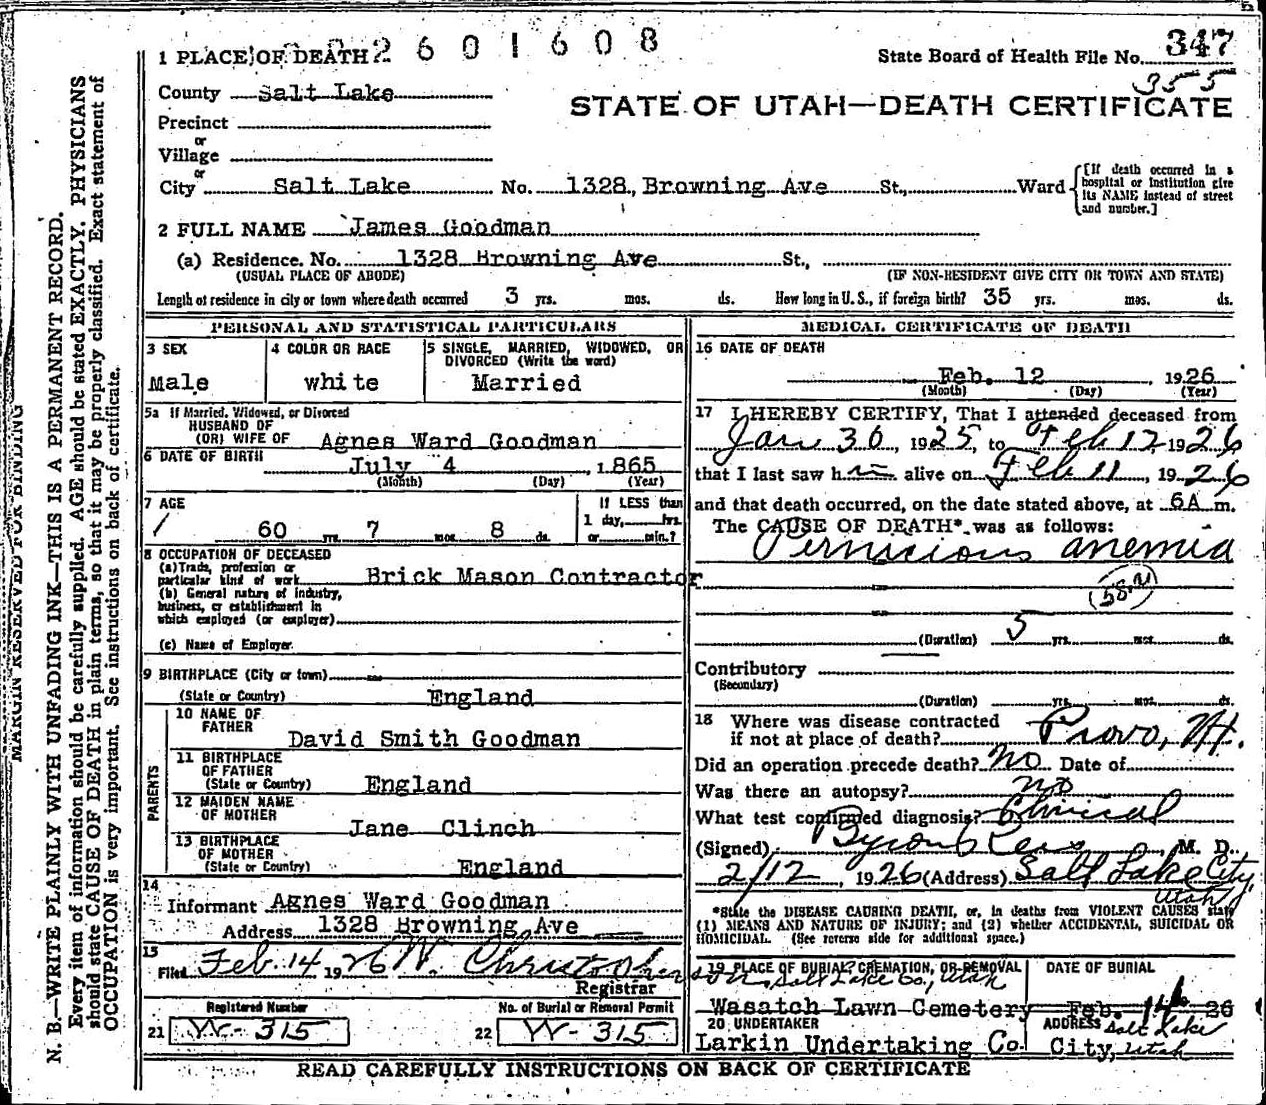 1 PLACE OF DEATH 2 6 0 1 6 0 8
State Board of Health File No. 347
355
County Salt Lake
STATE OF UTAH—DEATH CERTIFICATE
Precinct
or
Village
or
City Salt Lake No. 1328, Browning Ave St., Ward
[If death occurred in a hospital or institution give its NAME instead of street and number.]
2 FULL NAME James Goodman
(a) Residence. No. 1328 Browning Ave St.,
(USUAL PLACE OF ABODE) (IF NON-RESIDENT GIVE CITY OR TOWN AND STATE)
Length of residence in city or town where death occurred 3 yrs. mos. ds. How long in U. S., if foreign birth? 35 yrs. mos. ds.
PERSONAL AND STATISTICAL PARTICULARS
3 SEX
Male
4 COLOR OR RACE
white
5 SINGLE, MARRIED, WIDOWED, OR DIVORCED (Write the word)
Married
5a If Married, Widowed, or Divorced
HUSBAND OF
(OR) WIFE OF Agnes Ward Goodman
6 DATE OF BIRTH
July 4, 1865
(Month) (Day) (Year)
7 AGE
60 yrs. 7 mos. 8 ds.
If LESS than
1 day, hrs.
or min.?
8 OCCUPATION OF DECEASED
(a) Trade, profession or
particular kind of work Brick Mason Contractor
(b) General nature of industry,
business, or establishment in
which employed (or employer)
(c) Name of Employer
9 BIRTHPLACE (City or town)
(State or Country) England
PARENTS
10 NAME OF
FATHER
David Smith Goodman
11 BIRTHPLACE
OF FATHER
(State or Country) England
12 MAIDEN NAME
OF MOTHER
Jane Clinch
13 BIRTHPLACE
OF MOTHER
(State or Country) England
14
Informant Agnes Ward Goodman
Address 1328 Browning Ave
15
Filed Feb. 14 1926 W. Christopherson
Registrar
Registered Number
21 W-315
No. of Burial or Removal Permit
22 W-315
MEDICAL CERTIFICATE OF DEATH
16 DATE OF DEATH
Feb. 12, 1926
(Month) (Day) (Year)
17 I HEREBY CERTIFY, That I attended deceased from
Jan 30, 1925, to Feb 12, 1926
that I last saw him alive on Feb 11, 1926
and that death occurred, on the date stated above, at 6A m.
The CAUSE OF DEATH* was as follows:
Pernicious anemia
(Duration) 5 yrs. mos. ds.
Contributory
(Secondary)
(Duration) yrs. mos. ds.
18 Where was disease contracted
if not at place of death? Provo, Ut.
Did an operation precede death? No Date of
Was there an autopsy? no
What test confirmed diagnosis? Clinical
(Signed) M. D.
2/12, 1926 (Address) Salt Lake City,
Utah
*State the DISEASE CAUSING DEATH, or, in deaths from VIOLENT CAUSES state
(1) MEANS AND NATURE OF INJURY; and (2) whether ACCIDENTAL, SUICIDAL OR
HOMICIDAL. (See reverse side for additional space.)
19 PLACE OF BURIAL, CREMATION, OR REMOVAL
Salt Lake Co., Utah
Wasatch Lawn Cemetery
DATE OF BURIAL
Feb. 14 26
20 UNDERTAKER
Larkin Undertaking Co.
ADDRESS Salt Lake
City, Utah
READ CAREFULLY INSTRUCTIONS ON BACK OF CERTIFICATE
MARGIN RESERVED FOR BINDING
N. B.—WRITE PLAINLY WITH UNFADING INK—THIS IS A PERMANENT RECORD.
Every item of information should be carefully supplied. AGE should be stated EXACTLY. PHYSICIANS
should state CAUSE OF DEATH in plain terms, so that it may be properly classified. Exact statement of
OCCUPATION is very important. See instructions on back of certificate.